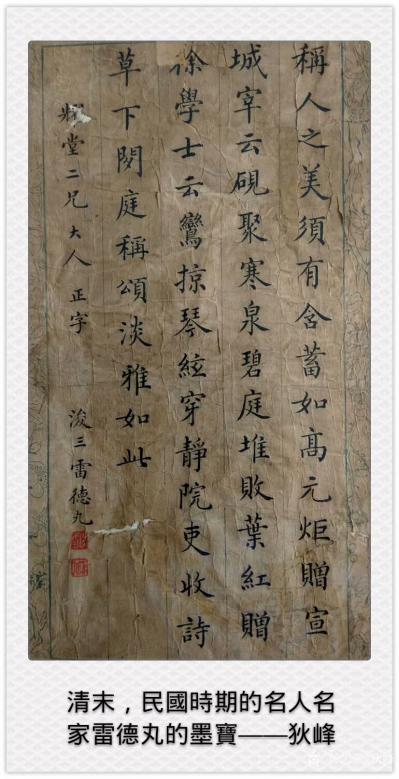 稱人之美須有含蓄如高元炬贈宣
城宰云硯聚寒泉碧庭堆敗葉紅贈
徐學士云鸞掠琴絃穿靜院吏收詩
草下閑庭稱頌淡雅如此
堂二兄大人正字
浚三雷德丸
清末，民國時期的名人名
家雷德丸的墨寶——狄峰